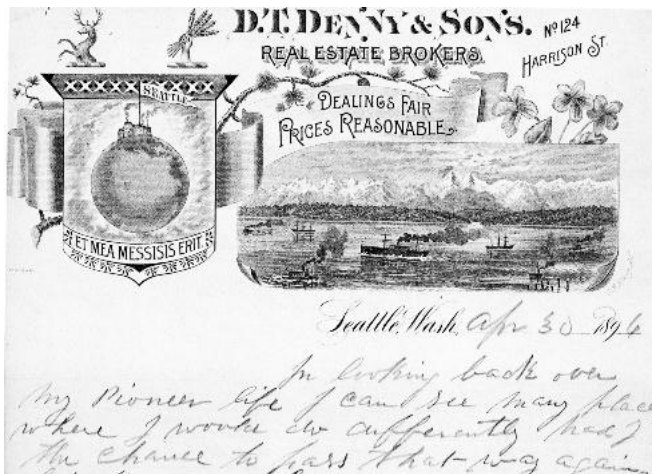 D.T. DENNY & SONS.
Nº 124
HARRISON ST.
REAL ESTATE BROKERS.
DEALINGS FAIR
PRICES REASONABLE.
SEATTLE
ET MEA MESSISIS ERIT.
Seattle, Wash, Apr 30 1894
In looking back over
my Pioneer life I can see many place
where I would do differently had I
the chance to pass that way again